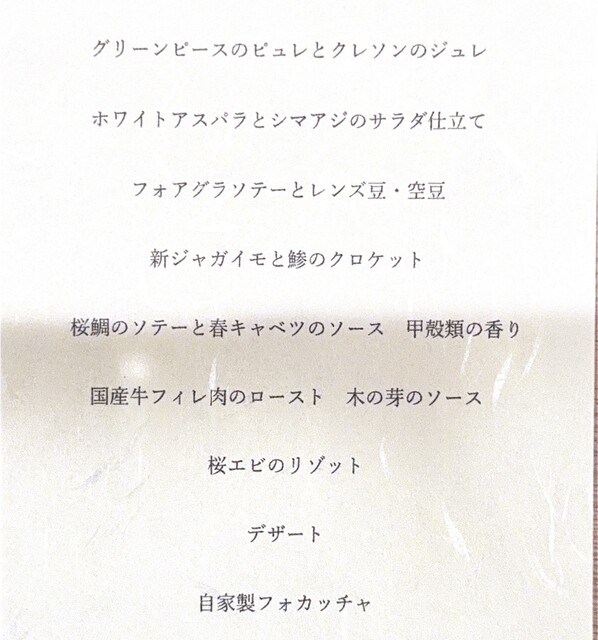 グリーンピースのピュレとクレソンのジュレ
ホワイトアスパラとシマアジのサラダ仕立て
フォアグラソテーとレンズ豆・空豆
新ジャガイモと鯵のクロケット
桜鯛のソテーと春キャベツのソース　甲殻類の香り
国産牛フィレ肉のロースト　木の芽のソース
桜エビのリゾット
デザート
自家製フォカッチャ